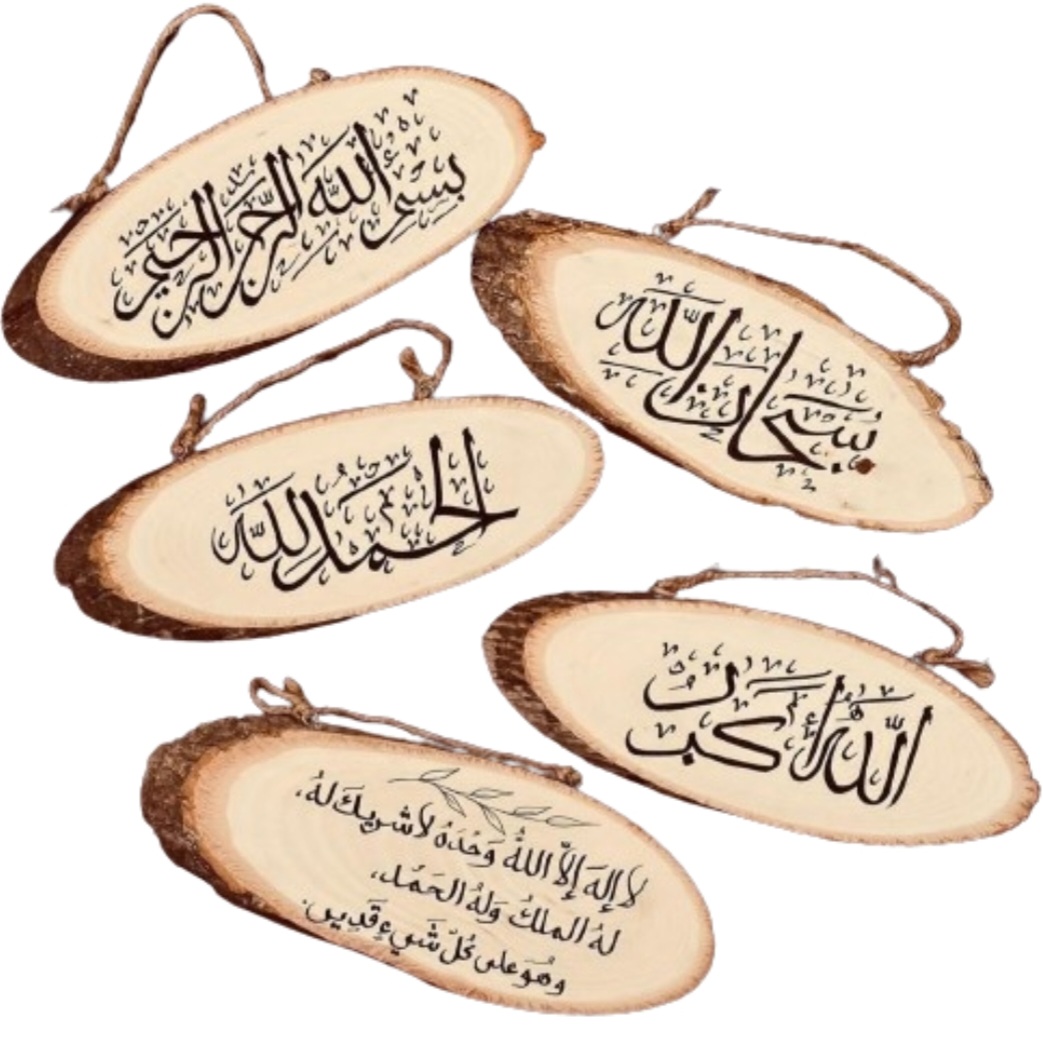 بسم الله الرحمن الرحيم
سبحان الله
الحمد لله
الله أكبر
لا إله إلا الله وحده لا شريك له،
له الملك وله الحمد،
وهو على كل شيء قدير.